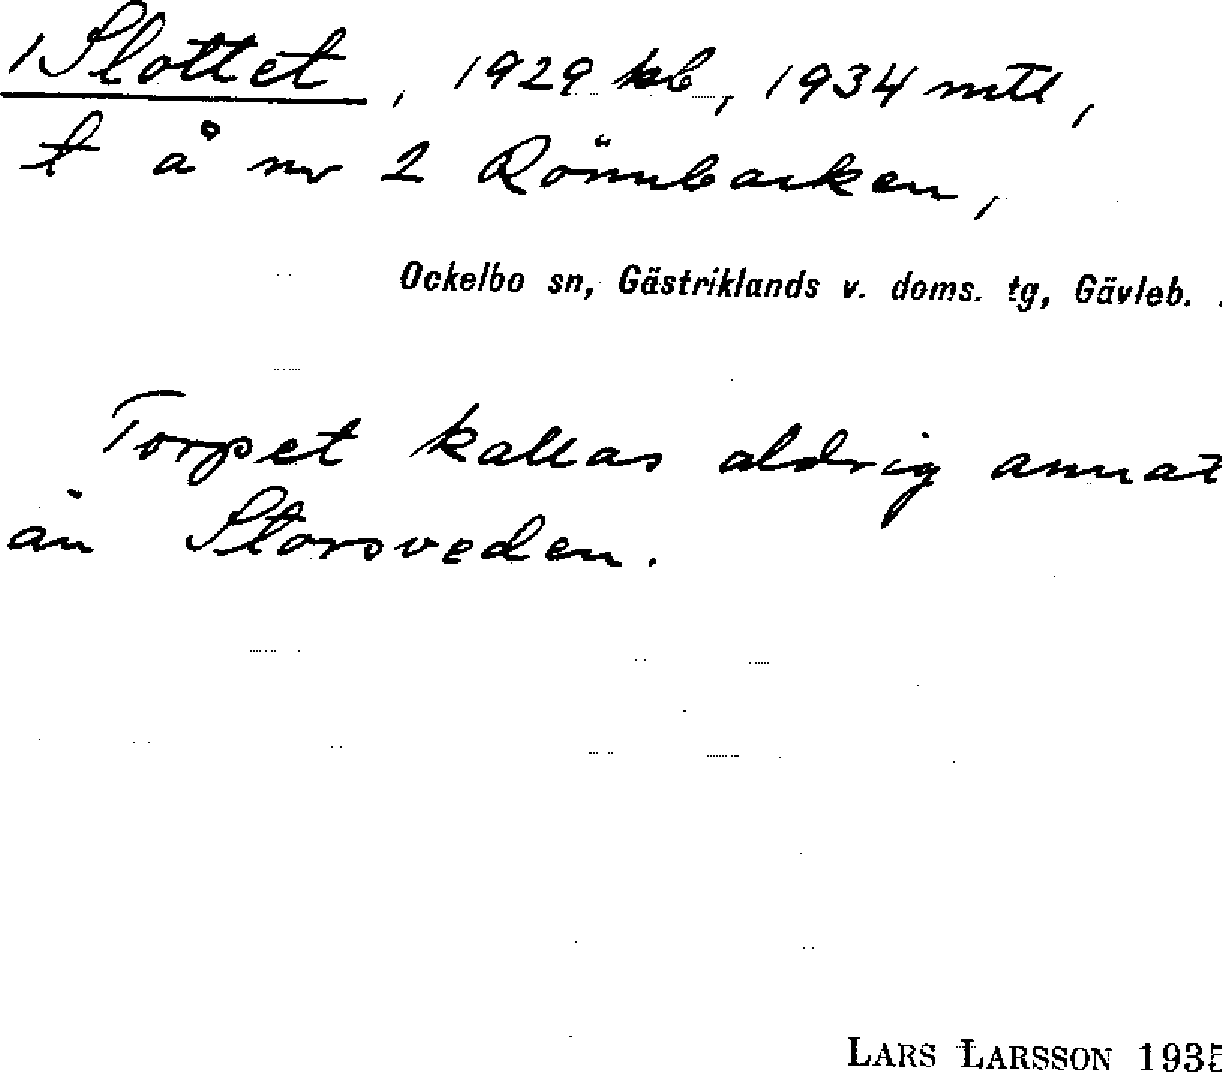 /Slottet, 1929 kb, 1934 mtl,
t å nr 2 Rönnbacken,
Ockelbo sn, Gästriklands v. doms. tg, Gävleb.
Torpet kallas aldrig annat
än Storsveden.
LARS LARSSON 1935